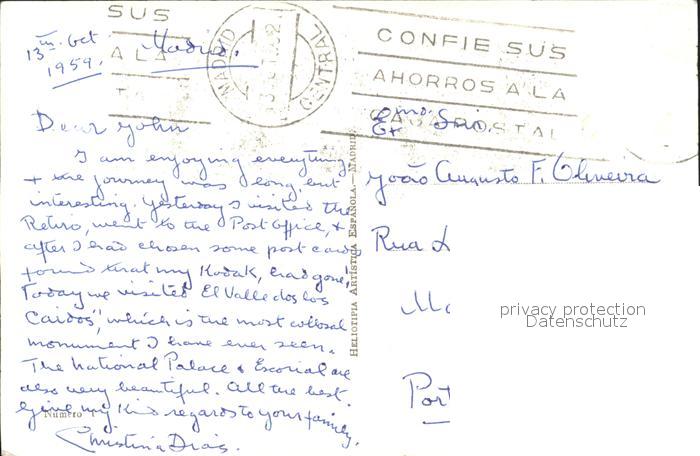 SUS
A LA
MADRID
CENTRAL
CONFIE SUS
AHORROS A LA
POSTAL
13th Oct
1959.
Madrid.
Dear John
I am enjoying everything
+ the journey was long but
interesting. Yesterday I visited the
Retiro, went to the Post Office, +
after I had chosen some post cards
found that my Kodak, had gone!
Today we visited "El Valle dos los
Caidos", which is the most colossal
monument I have ever seen.
The National Palace + Escorial are
also very beautiful. All the best.
Give my kind regards to your family,
Christina Dias.
Número
HELIOTIPIA ARTÍSTICA ESPAÑOLA.—MADRID.
Exmo. Snr.
João Augusto F. Oliveira
Rua
Port
privacy protection
Datenschutz